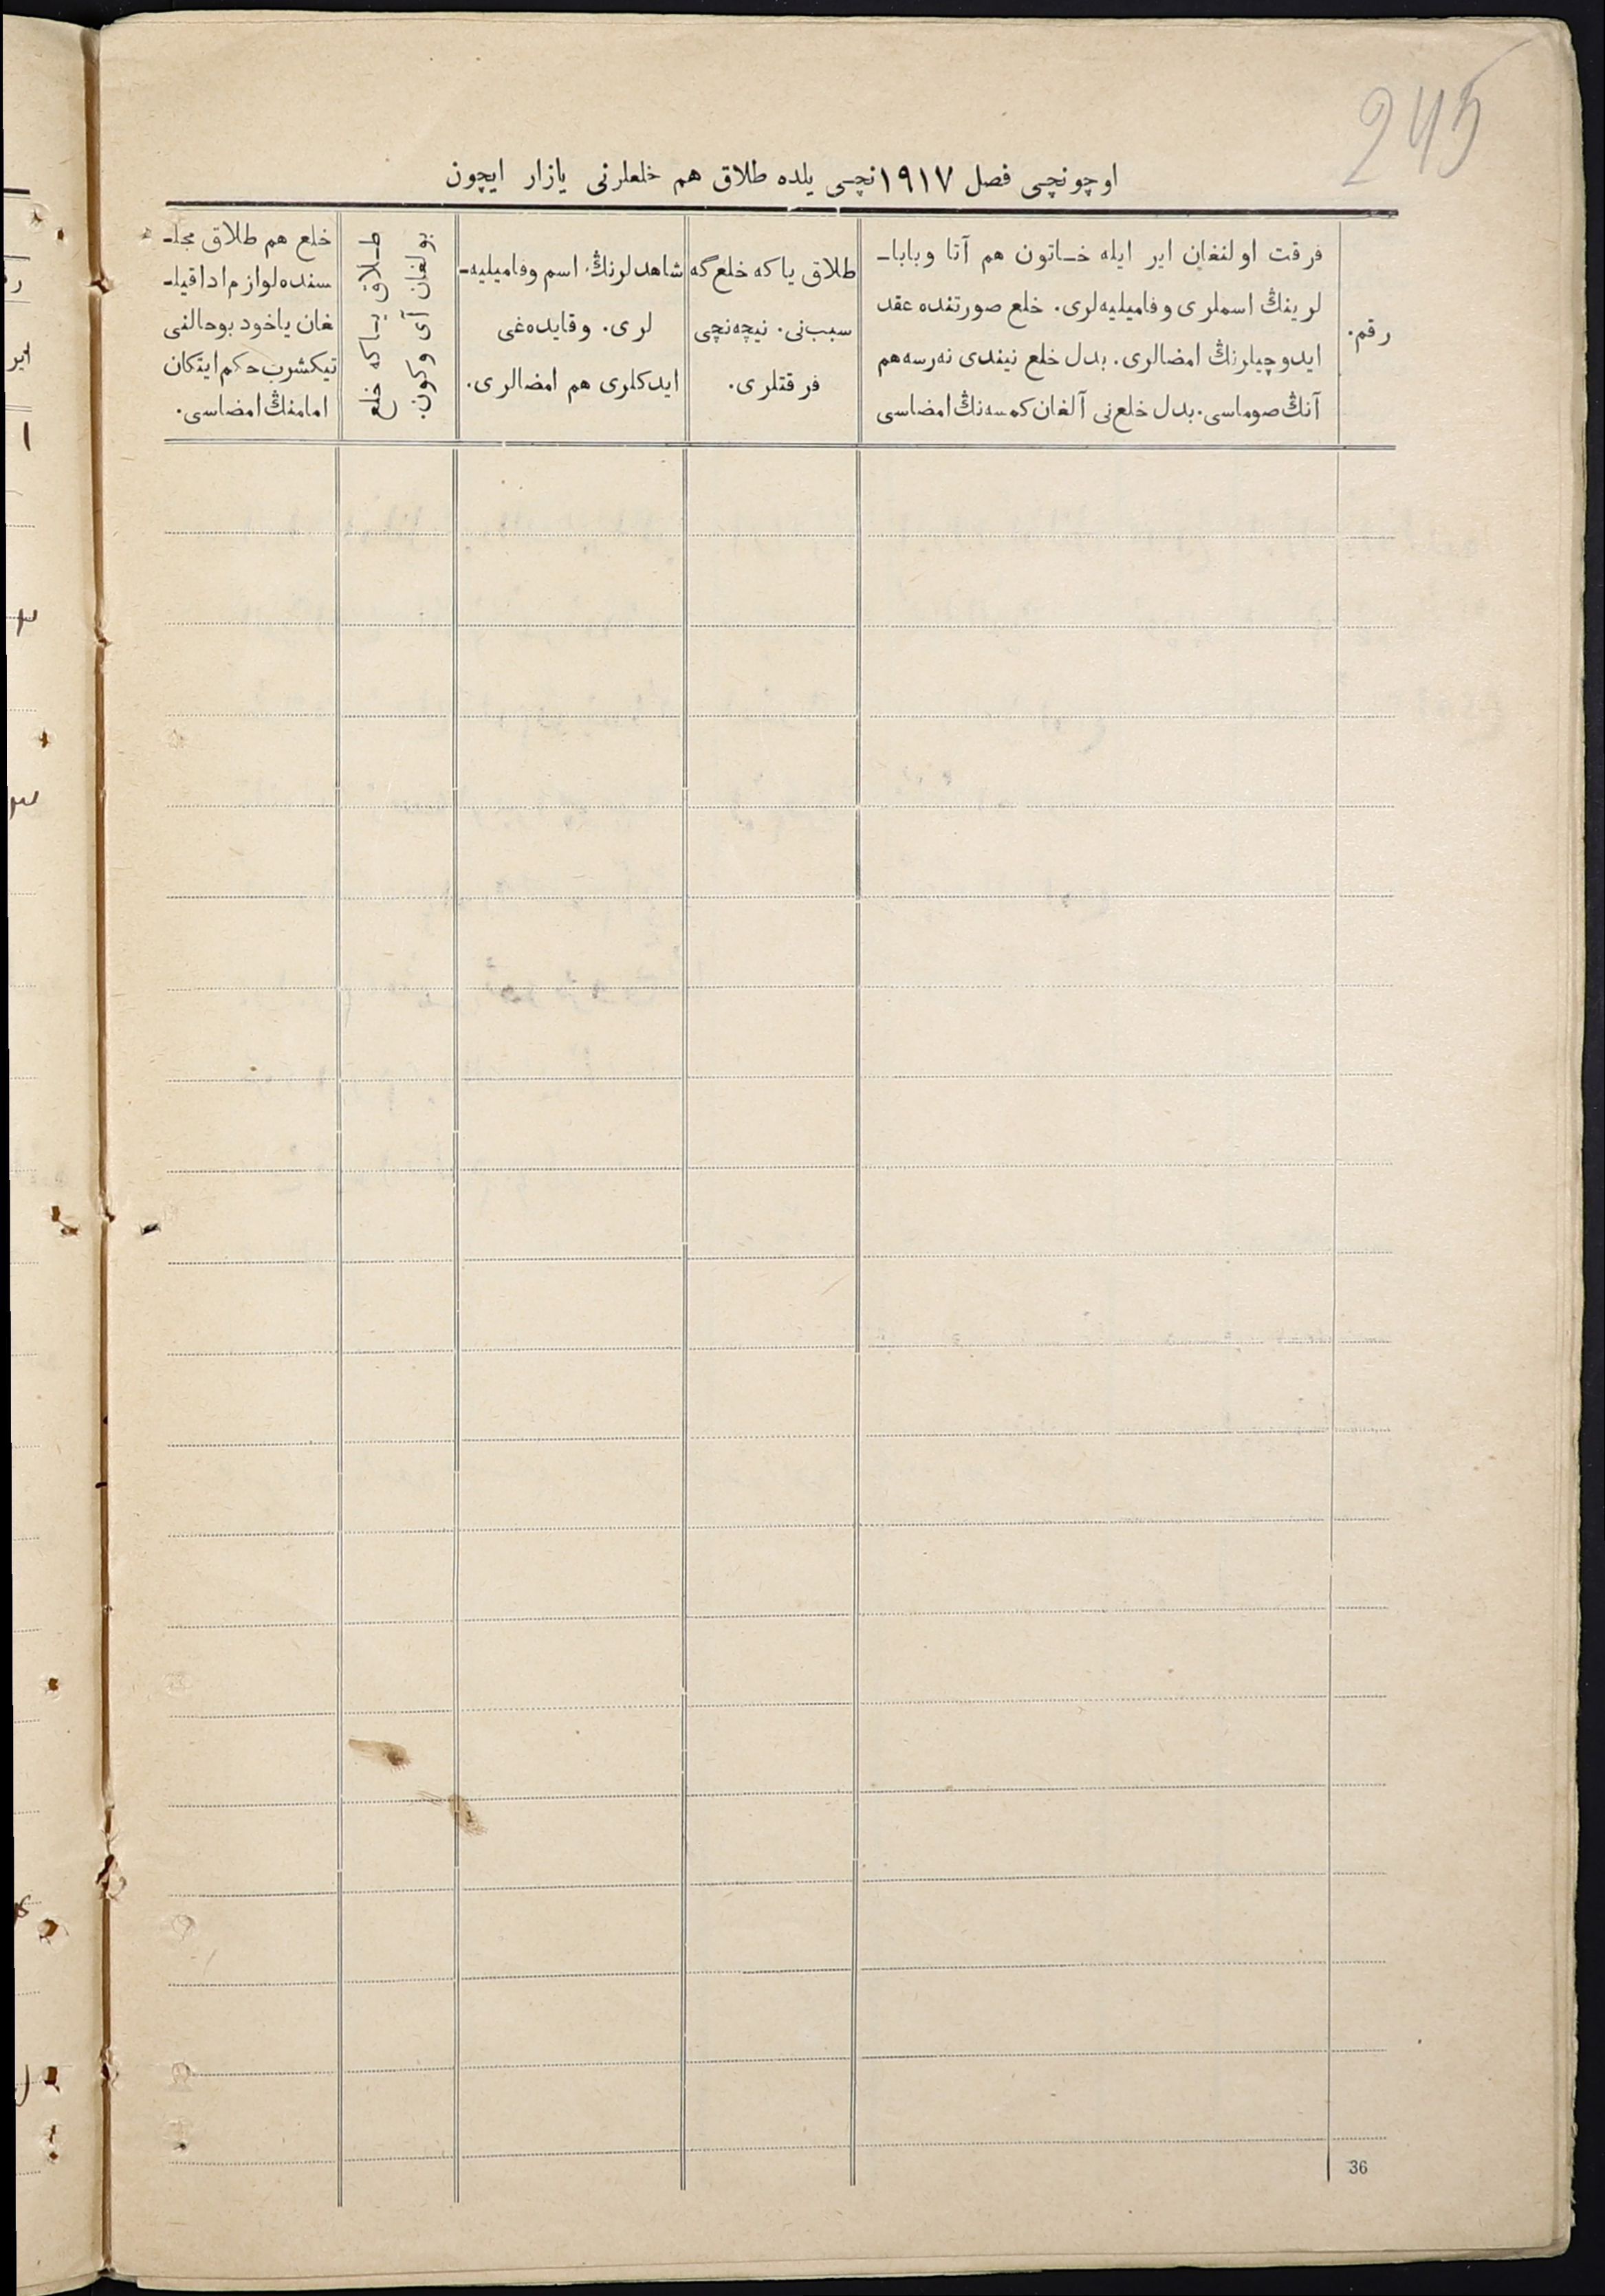 245
اوچونچی فصل ١٩١٧نچی یلده طلاق هم خلعلرنی یازار ایچون
رقم.
فرقت اولنغان ایر ایله خـاتون هم آتا وبابا-
لرینڭ اسملری وفامیلیه‌لری. خلع صورتنده عقد
ایدوچیلرنڭ امضالری. بدل خلع نیندی نه‌رسه هم
آنڭ صوماسی. بدل خلع‌نی آلغان کمسه‌نڭ امضاسی
طلاق یاکه خلع گه
سبب‌نی. نیچه‌نچی
فرقتلری.
شاهدلرنڭ اسم وفامیلیه-
لری. وقایده‌غی
ایدکلری هم امضالری.
طـلاق یـاکه خلع
بولغان آی وکون.
خلع هم طلاق مجلـ
سنده لوازم ادا قیلـ
غان یاخود بوحالنی
تیکشرب حکم ایتکان
امامنڭ امضاسی.
36